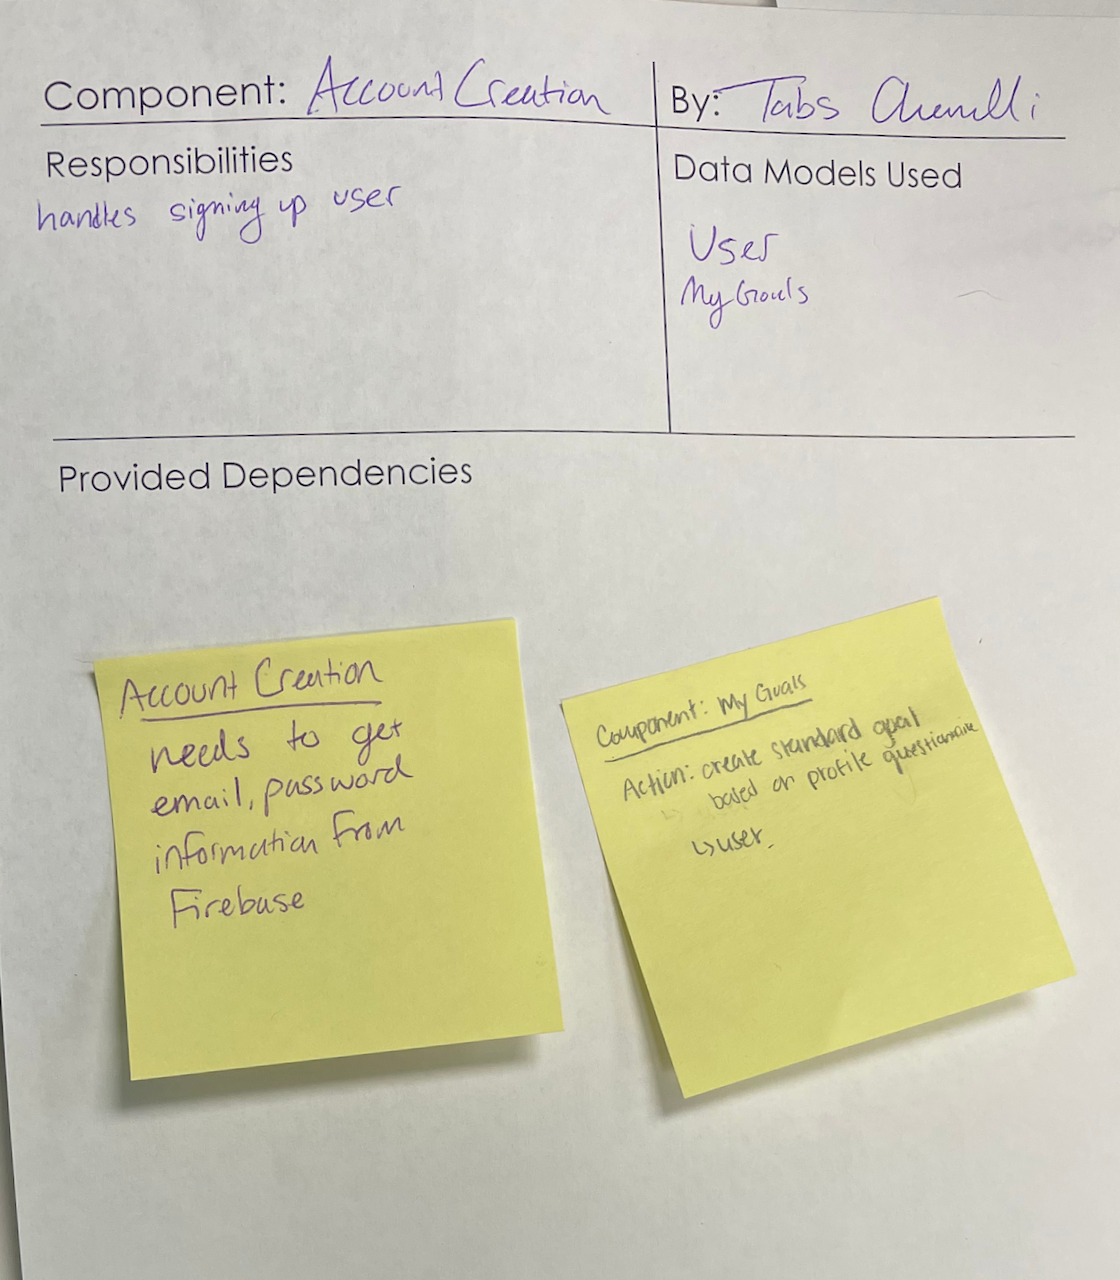 Component: Account Creation
By: Tabs
Responsibilities
handles signing up user
Data Models Used
User
My Goals
Provided Dependencies
Account Creation
needs to get
email, password
information from
Firebase
Component: My Goals
Action: create standard goal
based on profile questionnaire
↳ user